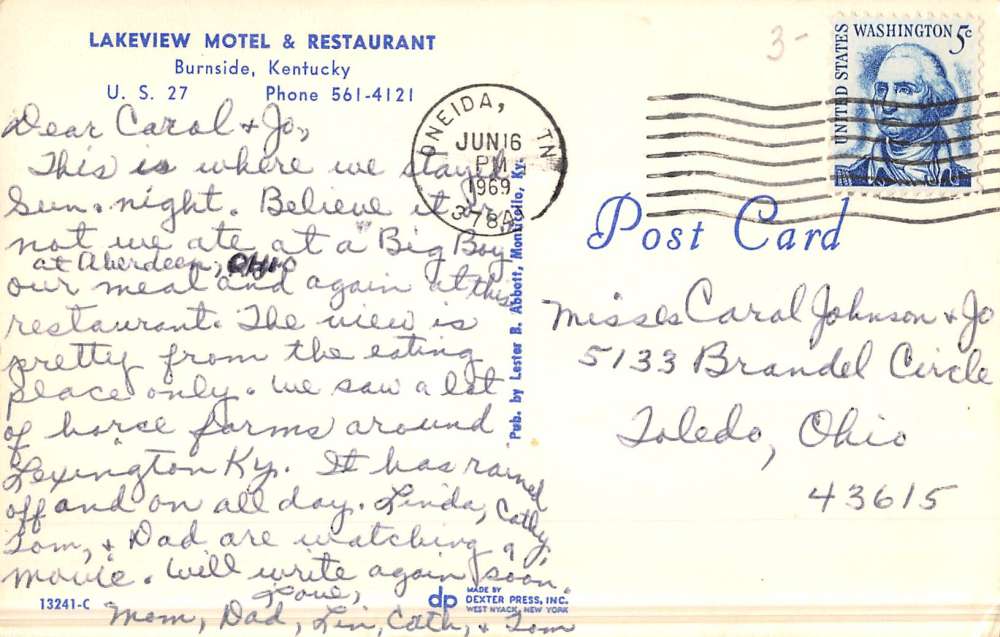 LAKEVIEW MOTEL & RESTAURANT
Burnside, Kentucky
U. S. 27 Phone 561-4121
Dear Carol & Jo,
This is where we stayed
Sun. night. Believe it or
not we ate at a "Big Boy
at Aberdeen, OHIO
our meal and again at this
restaurant. The view is
pretty from the eating
place only. We saw a lot
of horse farms around
Lexington Ky. It has rained
off and on all day. Linda, Cathy,
Tom, & Dad are watching a
movie. Will write again soon.
Love,
Mom, Dad, Lin, Cath, & Tom
13241-C
Pub. by Lester B. Abbott, Monticello, Ky.
dp MADE BY
DEXTER PRESS, INC.
WEST NYACK, NEW YORK
ONEIDA, TN
JUN 16
PM
1969
378A
3-
UNITED STATES
WASHINGTON 5c
Post Card
Misses Carol Johnson & Jo
5133 Brandel Circle
Toledo, Ohio
43615